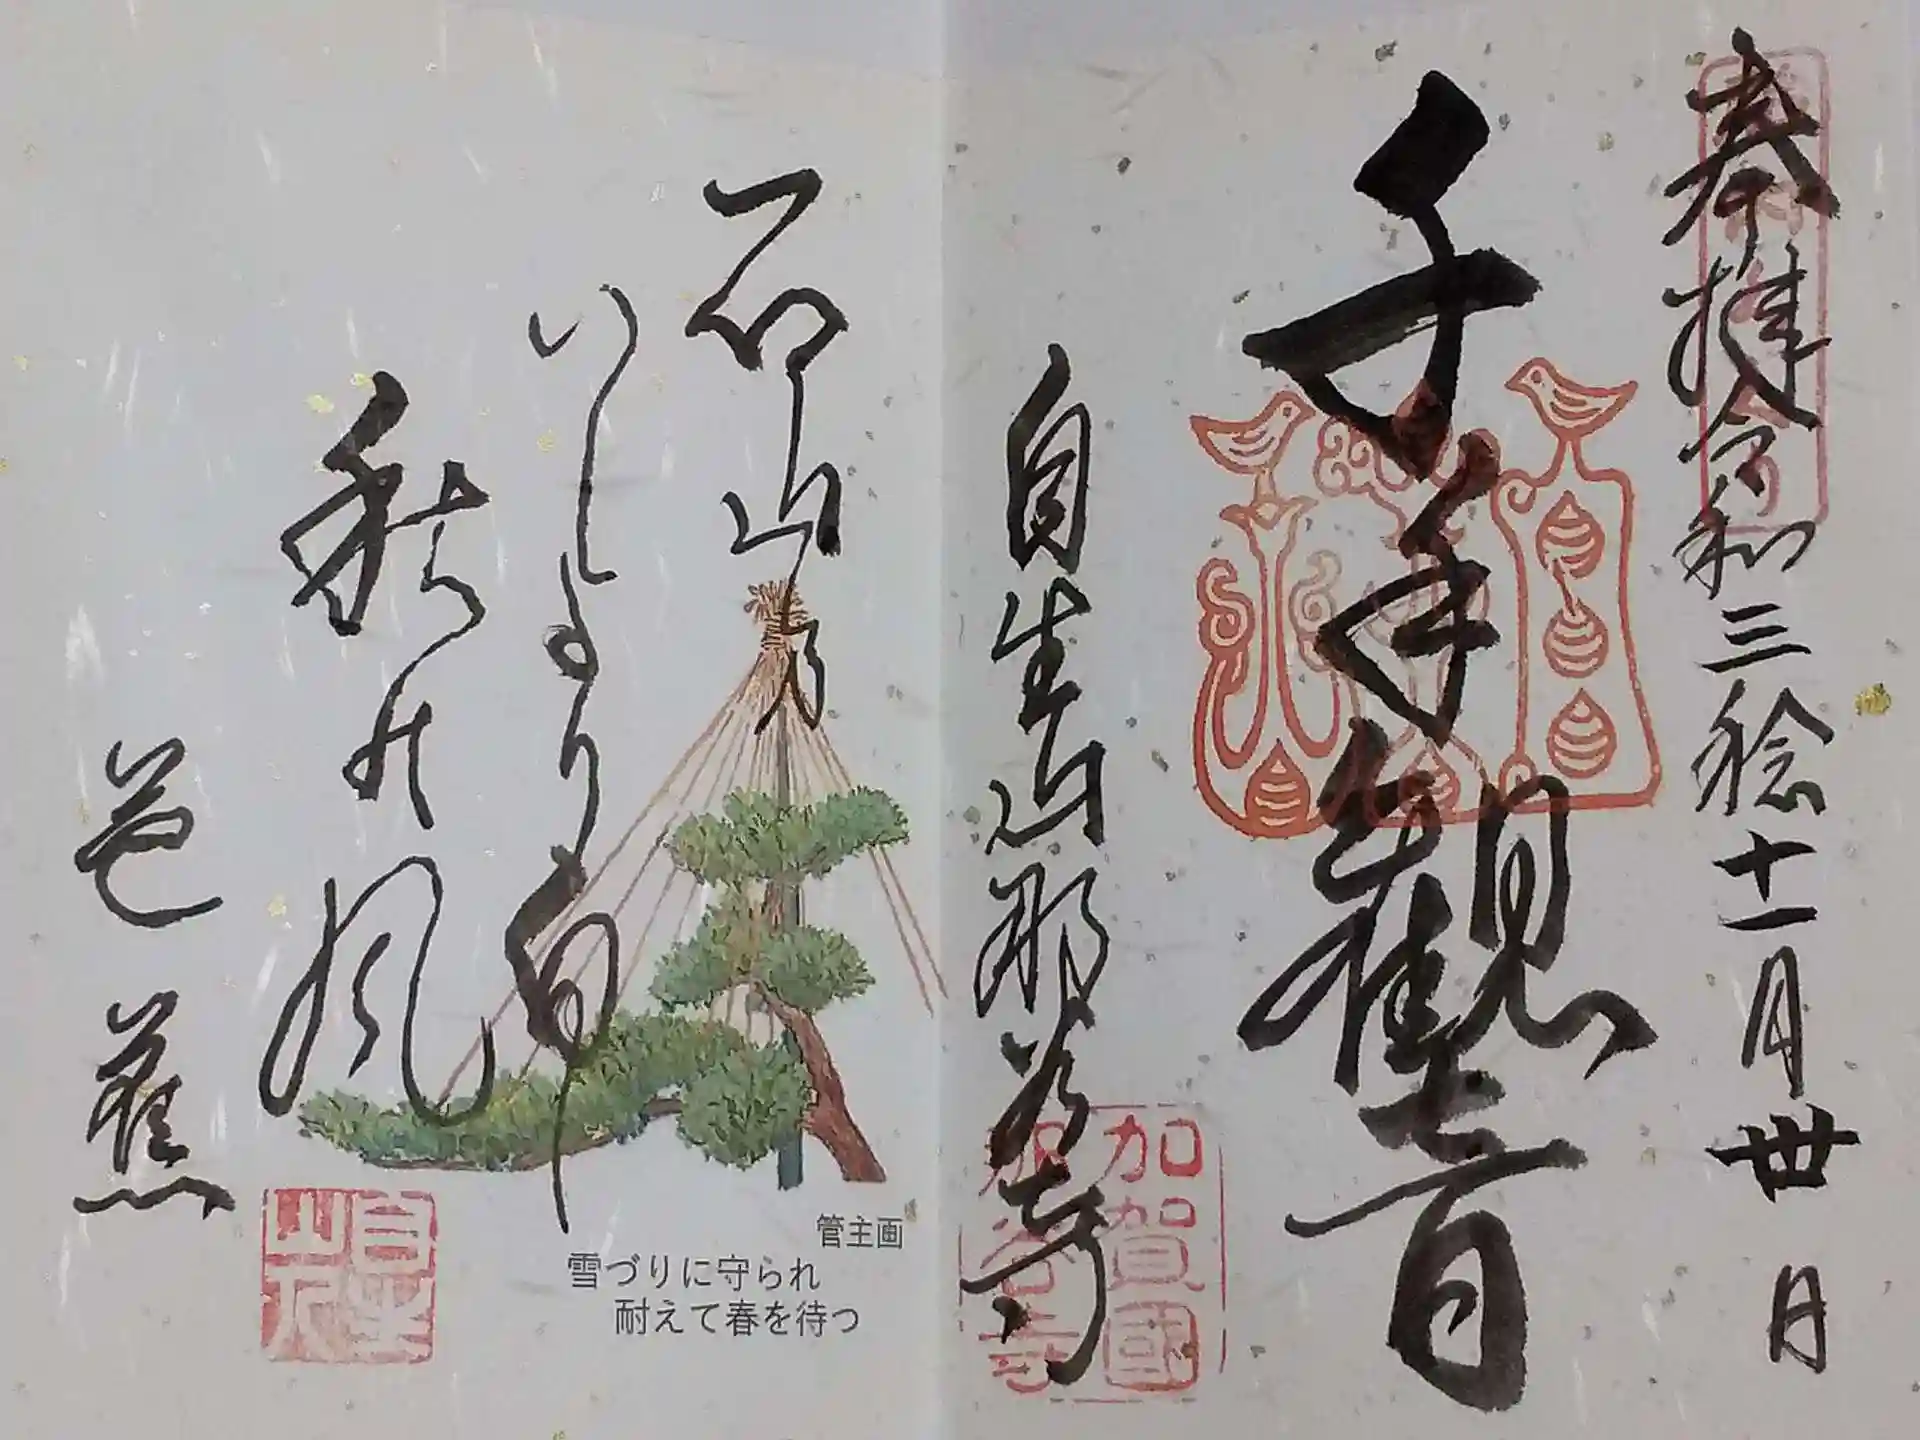 奉拝 令和三稔十一月卅日
千手観音
自生山那谷寺
加賀國
那谷寺
石山乃
いしより白
秋の風
芭蕉
管主画
雪づりに守られ
耐えて春を待つ